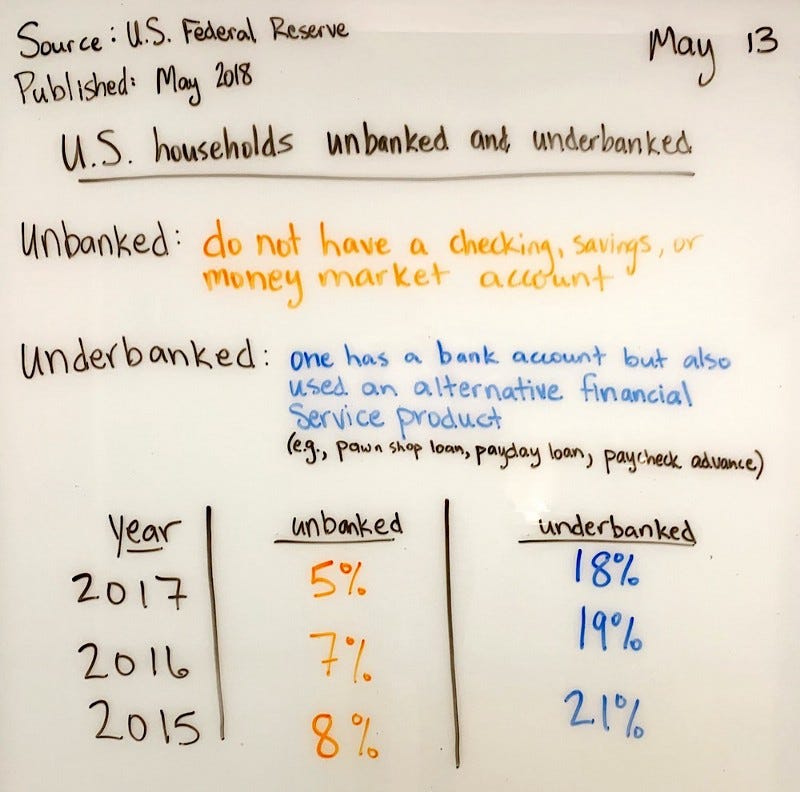 Source: U.S. Federal Reserve
May 13
Published: May 2018
U.S. households unbanked and underbanked
Unbanked: do not have a checking, savings, or
money market account
Underbanked: one has a bank account but also
used an alternative financial
Service product
(e.g., pawn shop loan, payday loan, paycheck advance)
year unbanked underbanked
2017 5% 18%
2016 7% 19%
2015 8% 21%